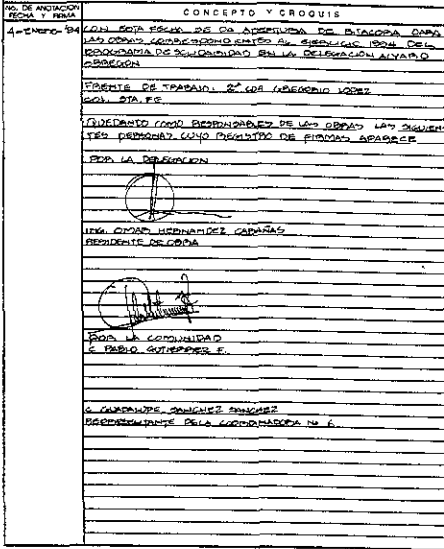 NO. DE ANOTACION
FECHA Y FIRMA
CONCEPTO Y CROQUIS
4-ENERO-94
CON ESTA FECHA SE DA APERTURA DE BITACORA PARA
LAS OBRAS CORRESPONDIENTES AL EJERCICIO 1994 DEL
PROGRAMA DE SOLIDARIDAD EN LA DELEGACION ALVARO
OBREGON
FRENTE DE TRABAJO: 2ª CDA GREGORIO LOPEZ
COL. STA. FE
QUEDANDO COMO RESPONSABLES DE LAS OBRAS LAS SIGUIEN
TES PERSONAS CUYO REGISTRO DE FIRMAS APARECE
POR LA DELEGACION
ING. OMAR HERNANDEZ CABAÑAS
RESIDENTE DE OBRA
POR LA COMUNIDAD
C PABLO GUTIERREZ F.
C GUADALUPE SANCHEZ SANCHEZ
REPRESENTANTE DE LA COORDINADORA No 6